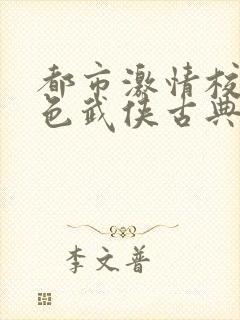 都市激情校
色武侠古典
李文普